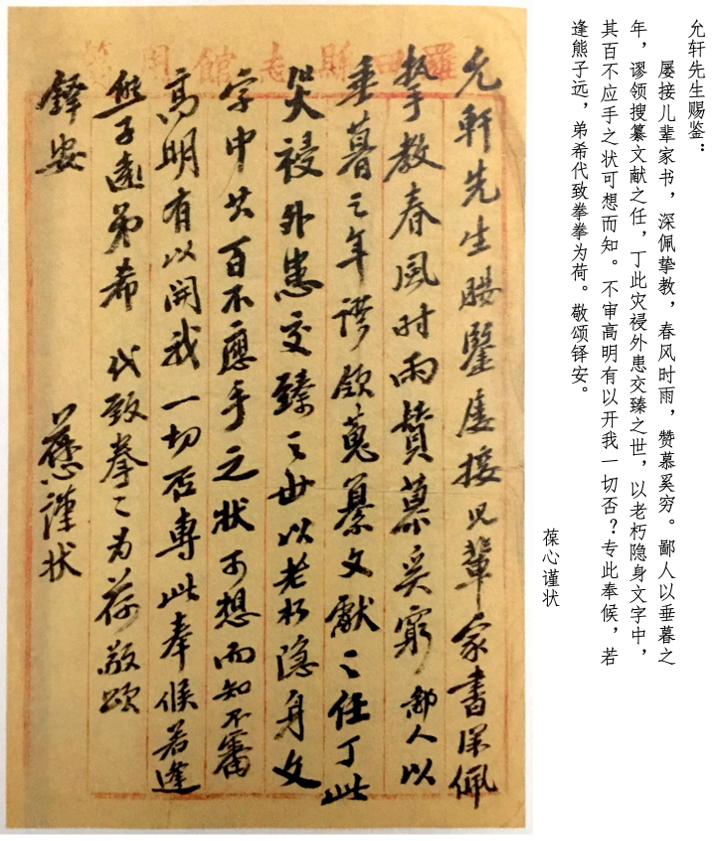 允轩先生赐鉴：
屡接儿辈家书，深佩挚教，春风时雨，赞慕奚穷。鄙人以垂暮之
年，谬领搜纂文献之任，丁此灾祲外患交臻之世，以老朽隐身文字中，
其百不应手之状可想而知。不审高明有以开我一切否？专此奉候，若
逢熊子远，弟希代致拳拳为荷。敬颂铎安。
葆心谨状
羅田縣志館用箋
允軒先生賜鑒屢接兒輩家書深佩
摯教春風时雨贊慕奚窮鄙人以
垂暮之年謬領蒐纂文獻之任丁此
灾祲外患交臻之世以老朽隐身文
字中其百不應手之状可想而知不審
高明有以開我一切否專此奉候若逢
熊子遠弟希代致拳〻为荷敬頌
鐸安
葆心謹状